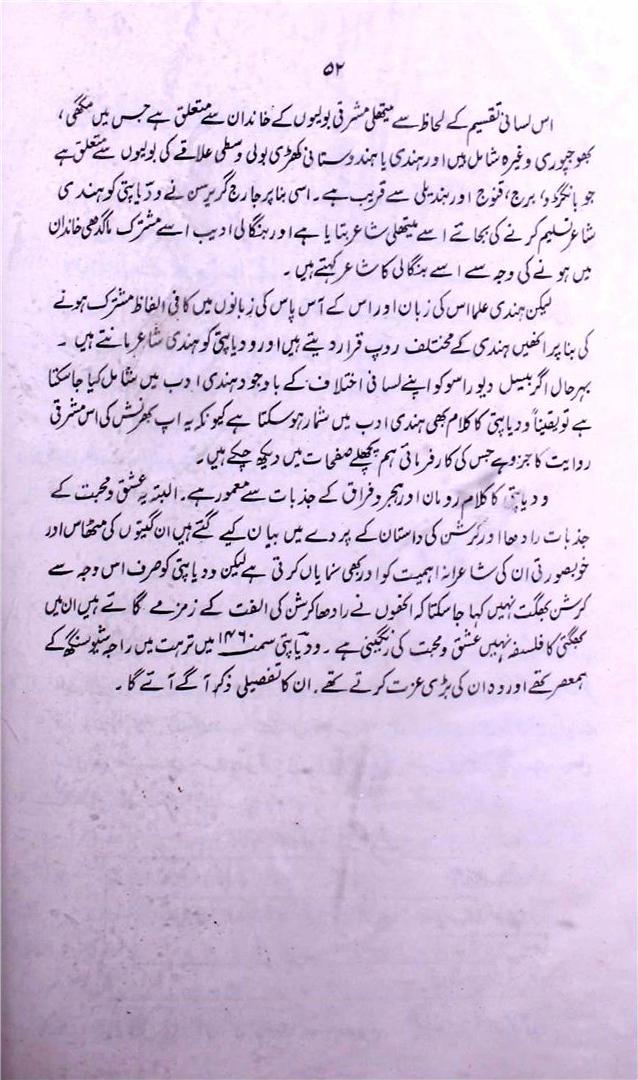 ۵۲
اس لسانی تقسیم کے لحاظ سے میتھلی مشرقی بولیوں کے خاندان سے متعلق ہے جس میں مگھی،
بھوجپوری وغیرہ شامل ہیں اور ہندی یا ہندوستانی کھڑی بولی وسطی علاقے کی بولیوں سے متعلق ہے
جو بانگڑو، برج، قنوج اور بندیلی سے قریب ہے۔ اسی بنا پر جارج گریرسن نے ودیاپتی کو ہندی
شاعر تسلیم کرنے کی بجائے اسے میتھلی شاعر بتایا ہے اور بنگالی ادیب اسے مشترک ماگدھی خاندان
میں ہونے کی وجہ سے اسے بنگالی کا شاعر کہتے ہیں۔
لیکن ہندی علما اس کی زبان اور اس کے آس پاس کی زبانوں میں کافی الفاظ مشترک ہونے
کی بنا پر انھیں ہندی کے مختلف روپ قرار دیتے ہیں اور ودیاپتی کو ہندی شاعر مانتے ہیں۔
بہرحال اگر بیسل دیو راسو کو اپنے لسانی اختلاف کے باوجود ہندی ادب میں شامل کیا جاسکتا
ہے تو یقیناً ودیاپتی کا کلام بھی ہندی ادب میں شمار ہوسکتا ہے کیونکہ یہ اپ بھرنش کی اس مشرقی
روایت کا جزو ہے جس کی کارفرمائی ہم پچھلے صفحات میں دیکھ چکے ہیں۔
ودیاپتی کا کلام رومان اور ہجر و فراق کے جذبات سے معمور ہے۔ البتہ یہ عشق و محبت کے
جذبات رادھا اور کرشن کی داستان کے پردے میں بیان کیے گئے ہیں ان گیتوں کی مٹھاس اور
خوبصورتی ان کی شاعرانہ اہمیت کو اور بھی نمایاں کرتی ہے لیکن ودیاپتی کو صرف اس وجہ سے
کرشن بھگت نہیں کہا جاسکتا کہ انھوں نے رادھا کرشن کی الفت کے زمزمے گائے ہیں ان میں
بھگتی کا فلسفہ نہیں عشق و محبت کی رنگینی ہے۔ ودیاپتی سمت ۱۴۶۰ میں ترہت میں راجہ شیو سنگھ کے
ہمعصر تھے اور وہ ان کی بڑی عزت کرتے تھے۔ ان کا تفصیلی ذکر آگے آئے گا۔